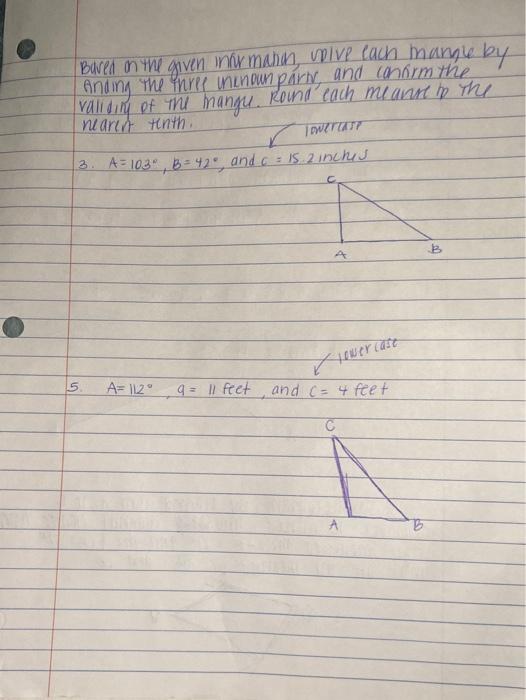 Based on the given information, solve each triangle by
finding the three unknown parts, and confirm the
validity of the triangle. Round each measure to the
nearest tenth.
lowercase
3. A = 103°, B = 42°, and c = 15.2 inches
C
A B
lowercase
5. A = 112°, a = 11 feet, and c = 4 feet
C
A B